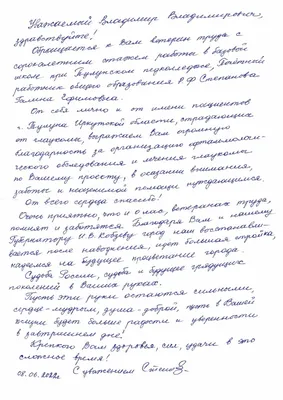 Уважаемый Владимир Владимирович,
здравствуйте!
Обращается к Вам ветеран труда с
сорокалетним стажем работы в базовой
школе при Тулунском педколледже, Почётный
работник общего образования РФ Степанова
Галина Ефимовна.
От себя лично и от имени пациентов
г. Тулуна Иркутской области, страдающих
от глаукомы, выражаем Вам огромную
благодарность за организацию офтальмологи-
ческого обследования и лечения глаукомы
по Вашему проекту, в оказании внимания,
заботы и неоценимой помощи нуждающимся.
От всего сердца спасибо!
Очень приятно, что и о нас, ветеранах труда,
помнят и заботятся. Благодаря Вам и нашему
Губернатору И.В. Кобзеву город наш восстанавли-
вается после наводнения, идёт большая стройка,
надеемся на будущее процветание города.
Судьба России, судьба и будущее грядущих
поколений в Ваших руках.
Пусть эти руки остаются сильными,
сердце-мудрым, душа-доброй, пусть в Вашей
жизни будет больше радости и уверенности
в завтрашнем дне!
Крепкого Вам здоровья, сил, удачи в это
сложное время!
08.06.2022г. С уважением